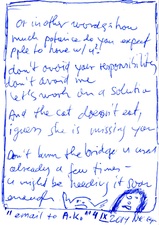 Or in other words: how
much patience do you expect
pple to have w/ u?
don't avoid your responsibility,
don't avoid me
let's work on a solution
And the cat doesn't eat,
i guess she is missing you
Don't burn the bridge u used
already a few times –
u might be needing it soon
enough
"email to A.K." 4 IX 2014